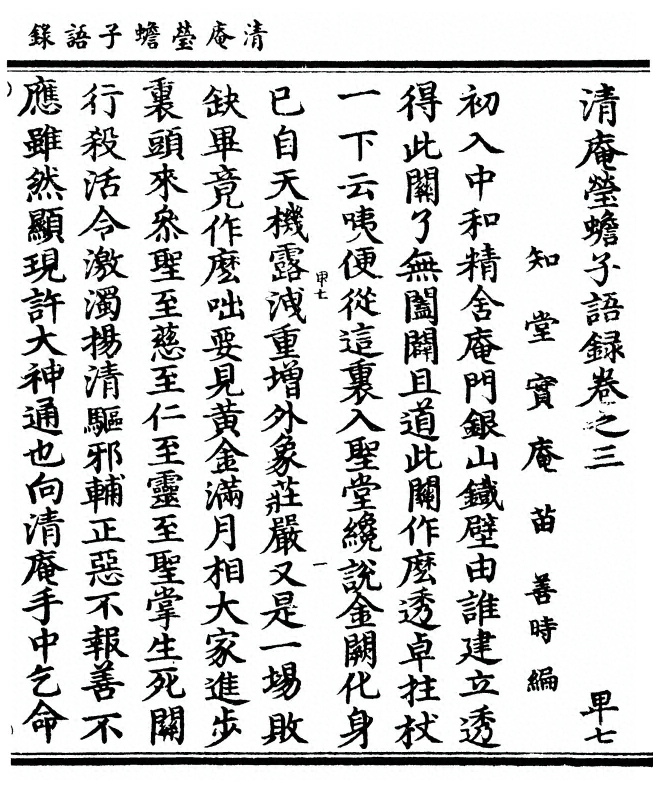 清庵瑩蟾子語錄
清庵瑩蟾子語録卷之三
甲七
知堂實庵苗善時編
初入中和精舍庵門銀山鐵壁由誰建立透
得此關了無闔闢且道此關作麽透卓拄杖
一下云咦便從這裏入聖堂纔說金闕化身
甲七
一
已自天機露洩重增外象莊嚴又是一場敗
缺畢竟作麽咄要見黃金滿月相大家進步
裏頭來叅聖至慈至仁至靈至聖掌生死關
行殺活令激濁揚清驅邪輔正惡不報善不
應雖然顯現許大神通也向清庵手中乞命